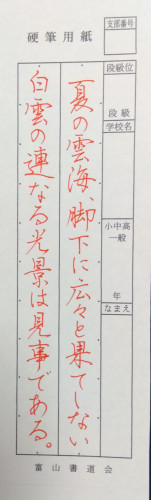 硬筆用紙
支部番号
段級位
段級
学校名
小中高
一般
年
なまえ
夏の雲海、脚下に広々と果てしない
白雲の連なる光景は見事である。
富山書道会